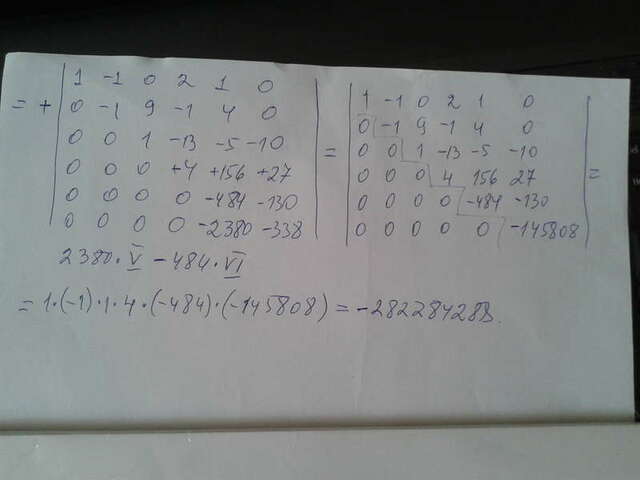 = + | 1 -1 0 2 1 0 | | 1 -1 0 2 1 0 |
0 -1 9 -1 4 0 | | 0 -1 9 -1 4 0
0 0 1 -13 -5 -10 | = | 0 0 1 -13 -5 -10
0 0 0 +4 +156 +27 | | 0 0 0 4 156 27 | =
0 0 0 0 -484 -130 | | 0 0 0 0 -484 -130
0 0 0 0 -2380 -338 | | 0 0 0 0 0 -145808 |
2380·V - 484·VI
= 1·(-1)·1·4·(-484)·(-145808) = -282284288